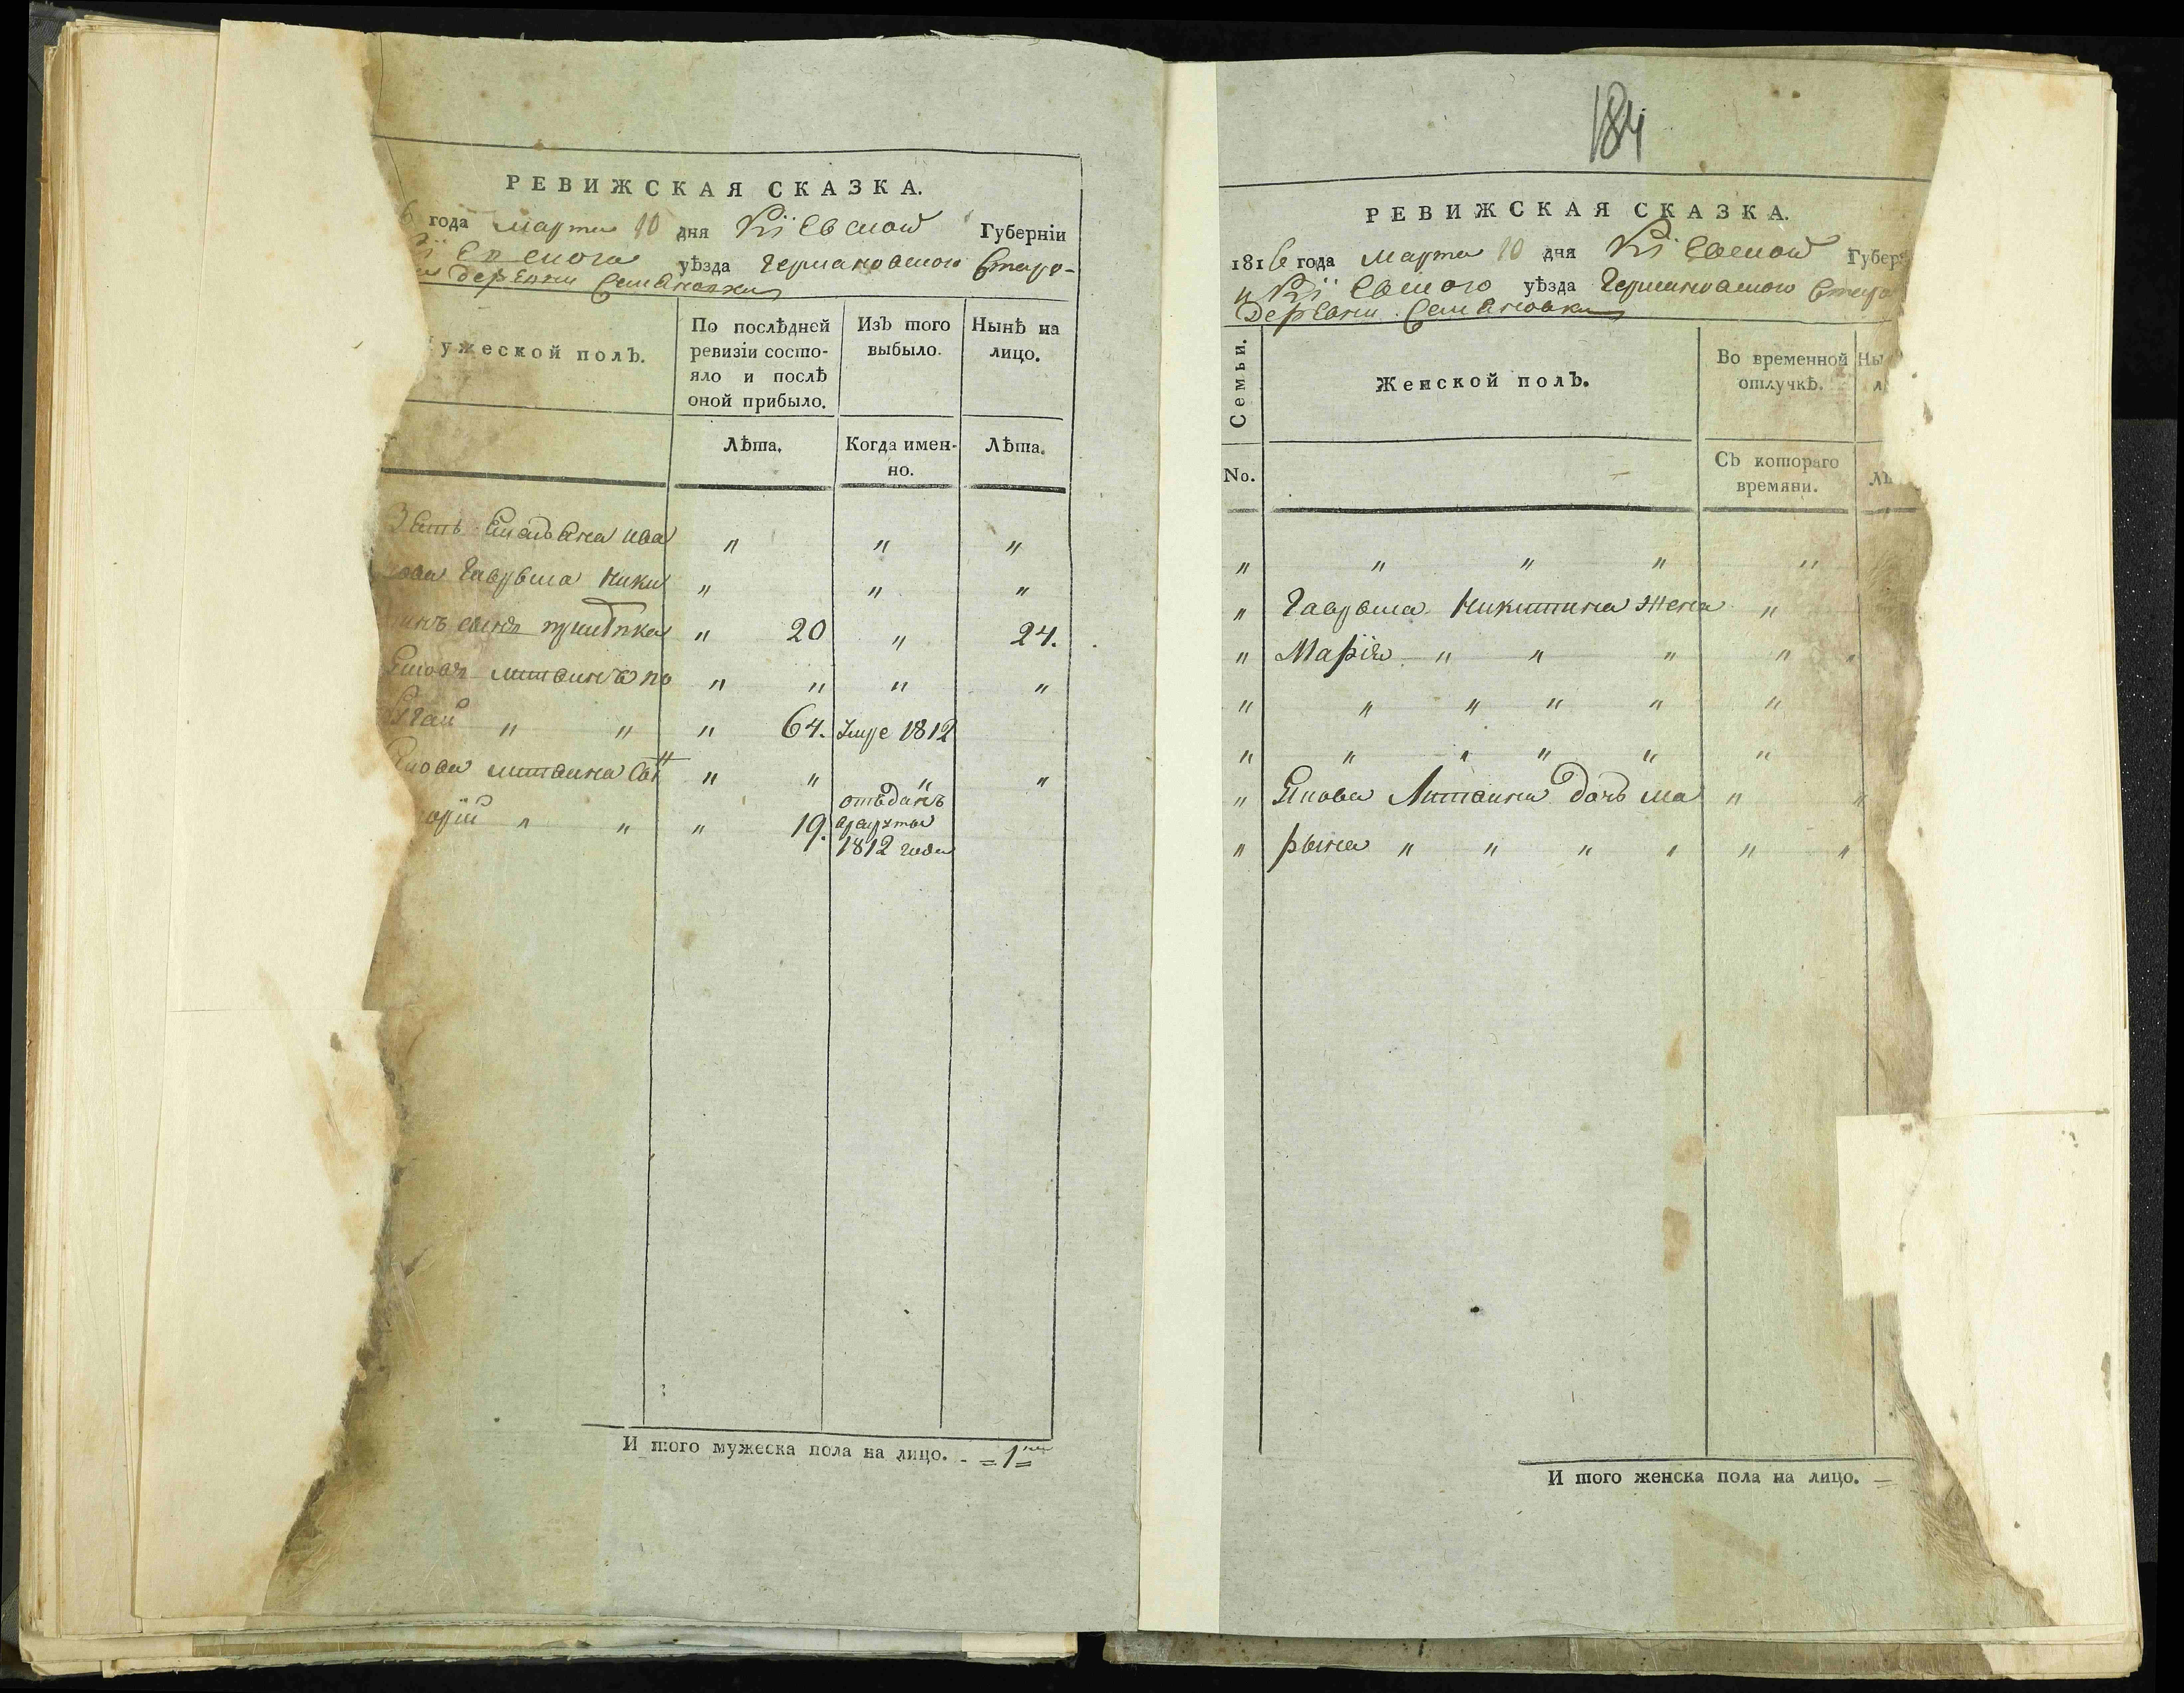 РЕВИЖСКАЯ СКАЗКА.
6 года марта 10 дня Кіевской Губерніи
уѣзда Германовского Старо-
деревни Семеновки
ужеской полЪ.
По послѣдней
ревизіи состо-
яло и послѣ
оной прибыло.
ИзЪ того
выбыло.
Нынѣ на
лицо.
Лѣта.
Когда имен-
но.
Лѣта.
Зять Емельяна ива
Гаврыла Ники
сынъ " 20 " 24.
Литвинъ по
" " " 64. умре 1812
Литвина
" " " 19. отъданъ
в рекруты
1812 года
И того мужеска пола на лицо. - = 1 =
184
РЕВИЖСКАЯ СКАЗКА.
1816 года марта 10 дня Кіевской Губер
и Кіевского уѣзда Германовского Старо
деревни Семеновки
Семьи.
Женской полЪ.
Во временной
отлучкѣ.
Ны
л
No.
СЪ котораго
времяни.
Лѣ
" " " " " "
" Гаврыла Никитина жена "
" Марія " " " "
" " " " " "
" " " " " "
" Якова Литвина дочь ма " "
" рына " " " " " "
И того женска пола на лицо. =